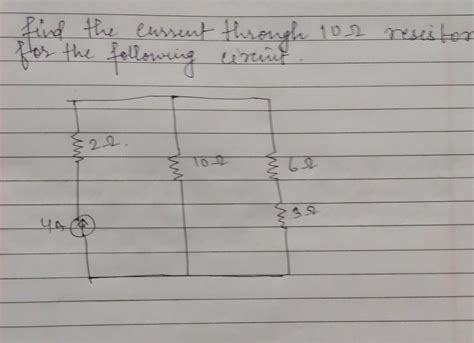 find the current through 10Ω resistor
for the following circuit.
2Ω.
10Ω
6Ω
3Ω
4A